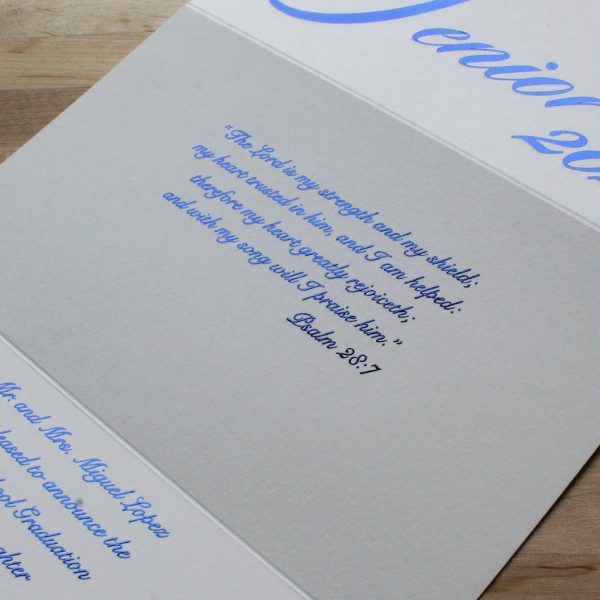 Senior
"The Lord is my strength and my shield;
my heart trusted in him, and I am helped:
therefore my heart greatly rejoiceth;
and with my song will I praise him."
Psalm 28:7
Mr. and Mrs. Miguel Lopez
announce the
Graduation